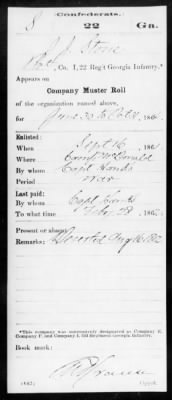 Confederate.
S 22 Ga.
J. J. Stone
Pvt, Co. I, 22 Reg't Georgia Infantry.*
Appears on
Company Muster Roll
of the organization named above,
for June 30 to Oct 31, 186
Enlisted:
When Sept 16, 186
Where Camp McDonald
By whom Capt
Period War
Last paid:
By whom Capt
To what time Feby 28, 1862
Present or absent
Remarks: Deserted Aug 16 1862
*This company was subsequently designated as Company E,
Company F, and Company I, 22d Regiment Georgia Infantry.
Book mark:
(642) Copyist.